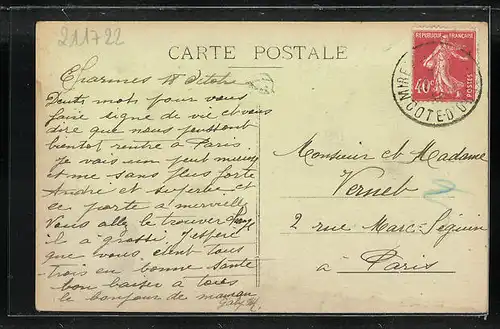 211722
CARTE POSTALE
REPUBLIQUE FRANÇAISE
40c
POSTES
MIRE
COTE D'O
Charmes 18
Deux mots pour vous
faire signe de vie et vous
dire que nous pensons
bientot rentré à Paris
Je vais un peut mieux
et me sans plus forte
André et superbe et
ce porte a merveille
Vous allez le trouver
il a grossi J'espère
que vous etent tous
trois en bonne santé
bon baiser a tous
le bonjour de maman
Gaby
Monsieur et Madame
Vernet
2 rue Marc-Séguin
à Paris